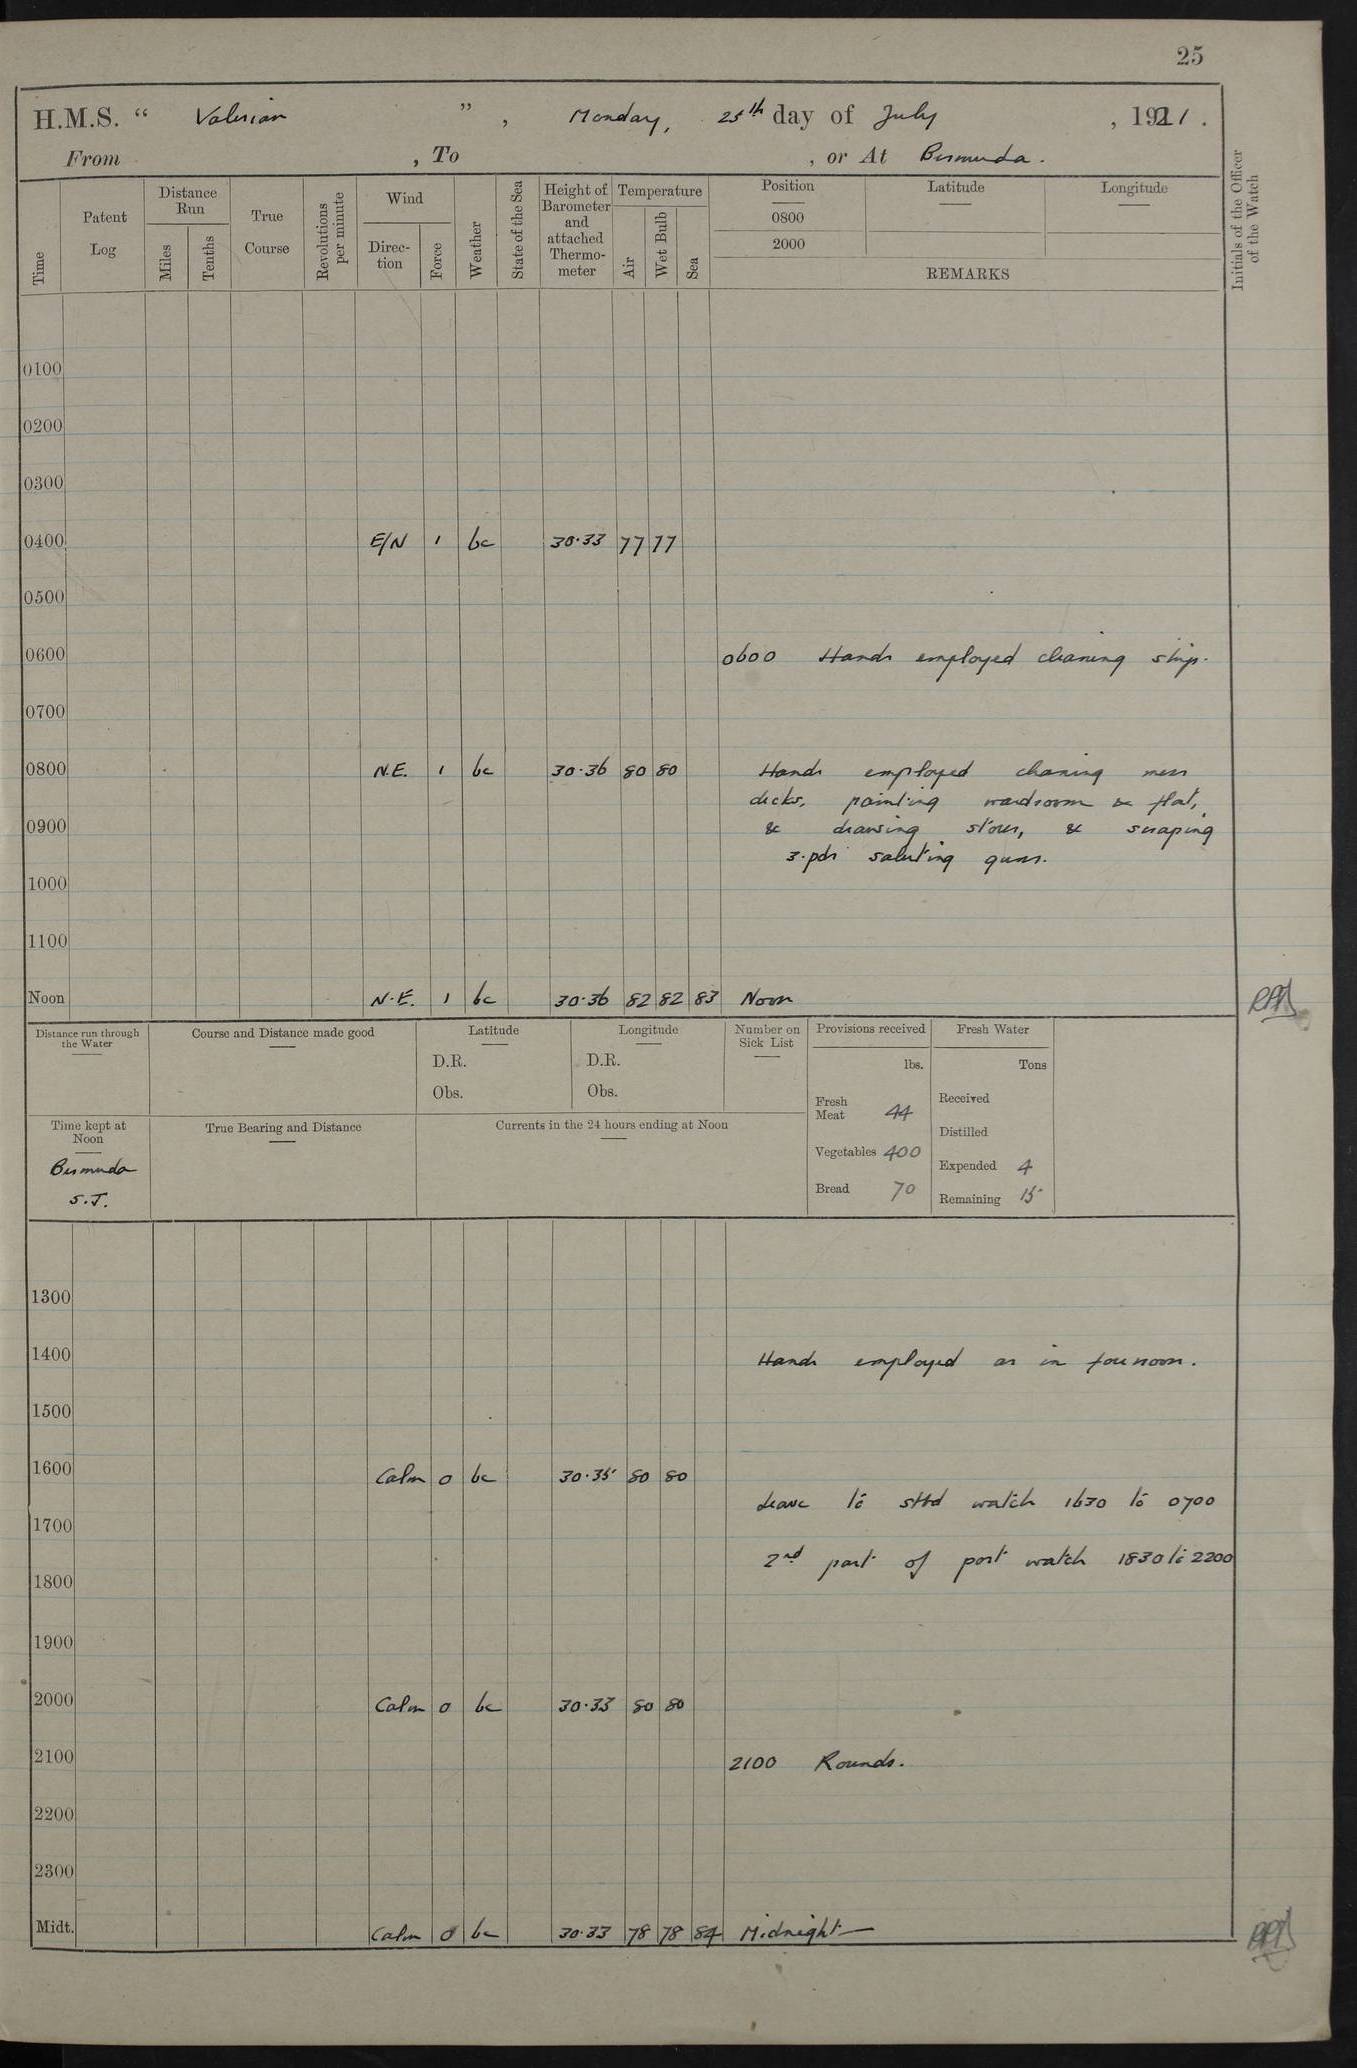 25
H.M.S. “ Valerian ”, Monday, 25th day of July, 1921.
From , To , or At Bermuda.
Time
Patent Log
Distance Run
Miles
Tenths
True Course
Revolutions per minute
Wind
Direc-tion
Force
Weather
State of the Sea
Height of Barometer and attached Thermo-meter
Temperature
Air
Wet Bulb
Sea
Position
0800
2000
Latitude
Longitude
REMARKS
Initials of the Officer of the Watch
0100
0200
0300
0400 E/N 1 bc 30.33 77 77
0500
0600 0600 Hands employed cleaning ship.
0700
0800 N.E. 1 bc 30.36 80 80 Hands employed cleaning mess
decks, painting wardroom & flat,
0900 & drawing stores, & scraping
3.pdr saluting guns.
1000
1100
Noon N.E. 1 bc 30.36 82 82 83 Noon
Distance run through the Water
Course and Distance made good
Latitude
D.R.
Obs.
Longitude
D.R.
Obs.
Number on Sick List
Provisions received
lbs.
Fresh Meat 44
Vegetables 400
Bread 70
Fresh Water
Tons
Received
Distilled
Expended 4
Remaining 15
Time kept at Noon
Bermuda
S.T.
True Bearing and Distance
Currents in the 24 hours ending at Noon
1300
1400 Hands employed as in forenoon.
1500
1600 Calm 0 bc 30.35 80 80
Leave to stbd watch 1630 to 0700
1700
2nd part of port watch 1830 to 2200
1800
1900
2000 Calm 0 bc 30.33 80 80
2100 2100 Rounds.
2200
2300
Midt. Calm 0 bc 30.33 78 78 84 Midnight